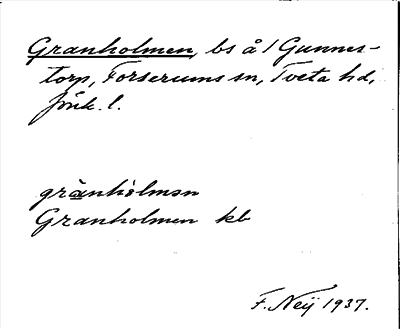 Granholmen, bs å / Gunnes-
torp, Forserums sn, Tveta hd,
Jönk. l.
grànhòlmən
Granholmen kb
F. Neij 1937.